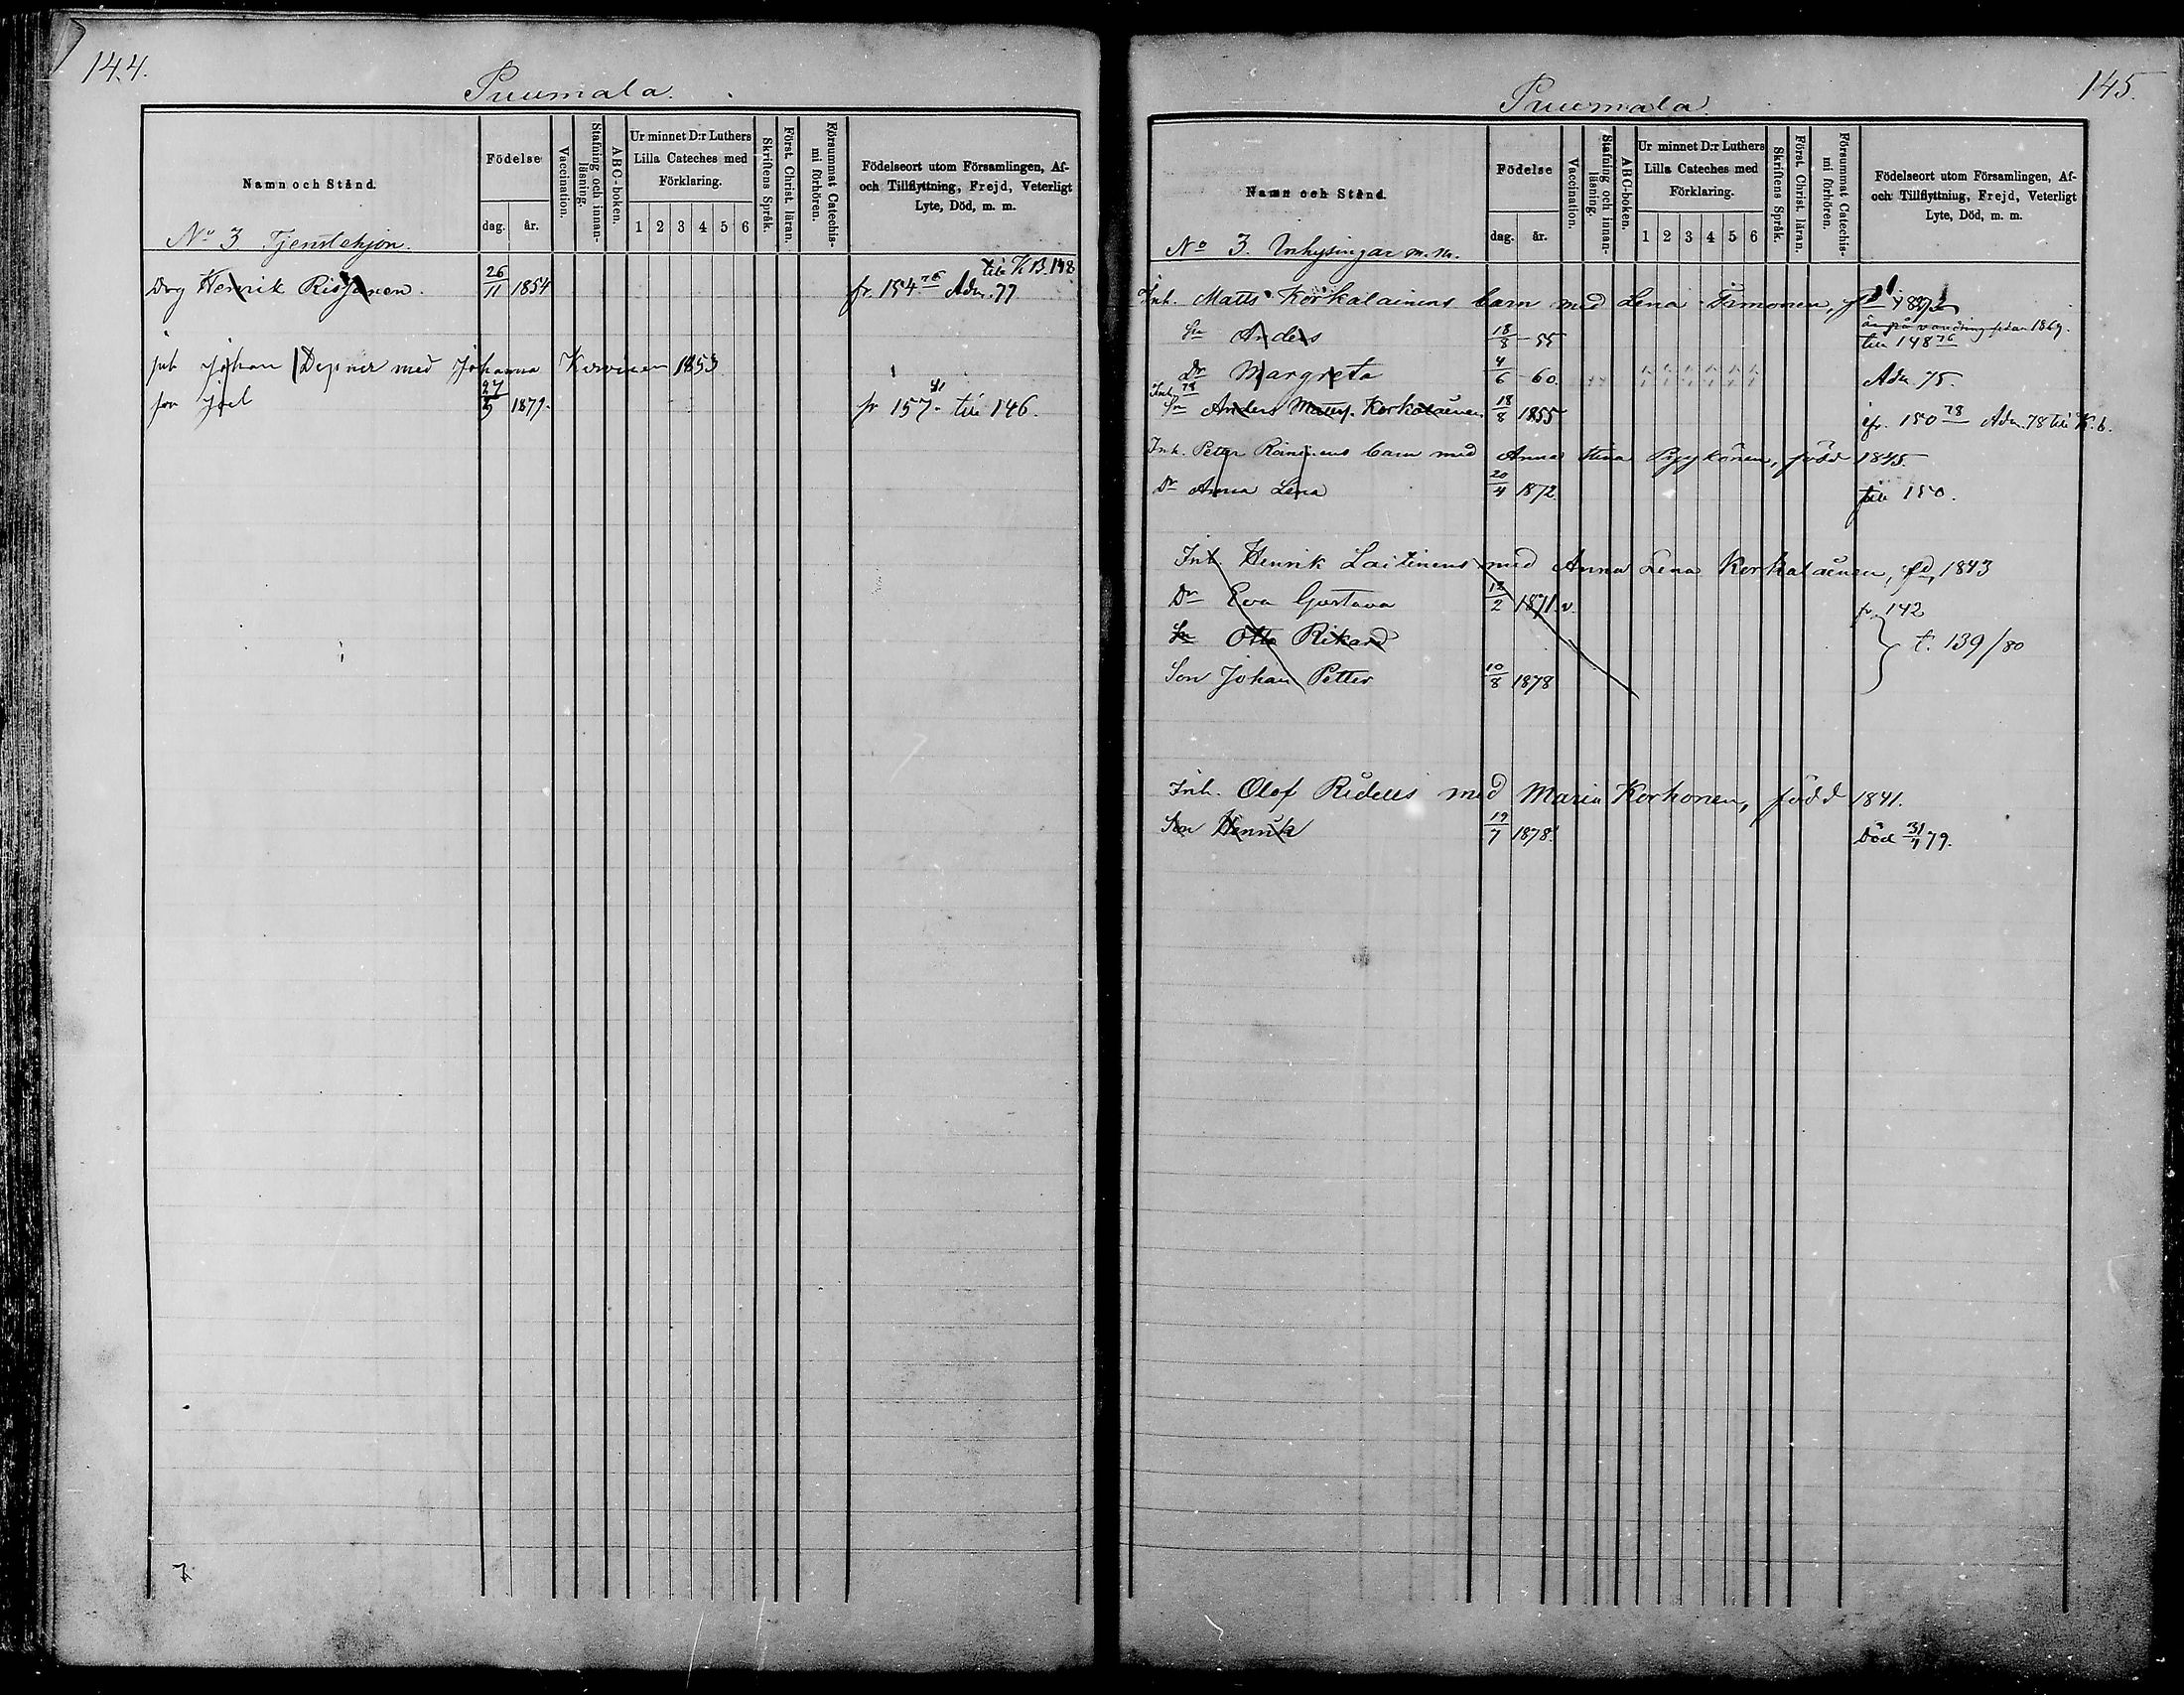 144.
Puumala.
Namn och Stånd.
Födelse
dag.
år.
Vaccination.
Stafning och innan-
läsning.
ABC-boken.
Ur minnet D:r Luthers
Lilla Cateches med
Förklaring.
1 2 3 4 5 6
Skriftens Språk.
Först. Christ. läran.
Försummat Catechis-
mi förhören.
Födelseort utom Församlingen, Af-
och Tillflyttning, Frejd, Veterligt
Lyte, Död, m. m.
No 3 Tjenstehjon.
till K.B. 148
Drg Henrik Risjanen. 26/11 1854 fr. 154 76 Adm. 77
Inh Johan Depner med Johanna 1853
son Joel 5 1879. fr 157 till 146.
7
145.
Puumala
Namn och Stånd.
Födelse
dag.
år.
Vaccination.
Stafning och innan-
läsning.
ABC-boken.
Ur minnet D:r Luthers
Lilla Cateches med
Förklaring.
1 2 3 4 5 6
Skriftens Språk.
Först. Christ. läran.
Försummat Catechis-
mi förhören.
Födelseort utom Församlingen, Af-
och Tillflyttning, Frejd, Veterligt
Lyte, Död, m. m.
No 3. Inhysingar m. m.
Inh. Matts Korkalainens barn med Lena Timonen,
är på vandring sedan 1869.
Sn Anders 18/8 55 till 148 76
Dr Margreta 4/6 60. Adm. 75.
Inh. 78
Sn Anders Matts. Korkalainen 18/8 1855 fr. 150 78 Adm. 78 till K.b.
Inh. Petter Rainens barn med Anna Stina Pyykönen, född 1845.
Dr Anna Lena 20/4 1872 till 150.
Inh. Henrik Laitinens med Anna Lena Korkalainen, fd, 1843
Dr Eva Gustava 12/2 1871 v fr. 142
Sn Otto Rikard t. 139/80
Son Johan Petter 10/8 1878
Inh. Olof Ridells med Maria Korhonen, född 1841.
Son Henrik 19/7 1878. Död 31/ 79.